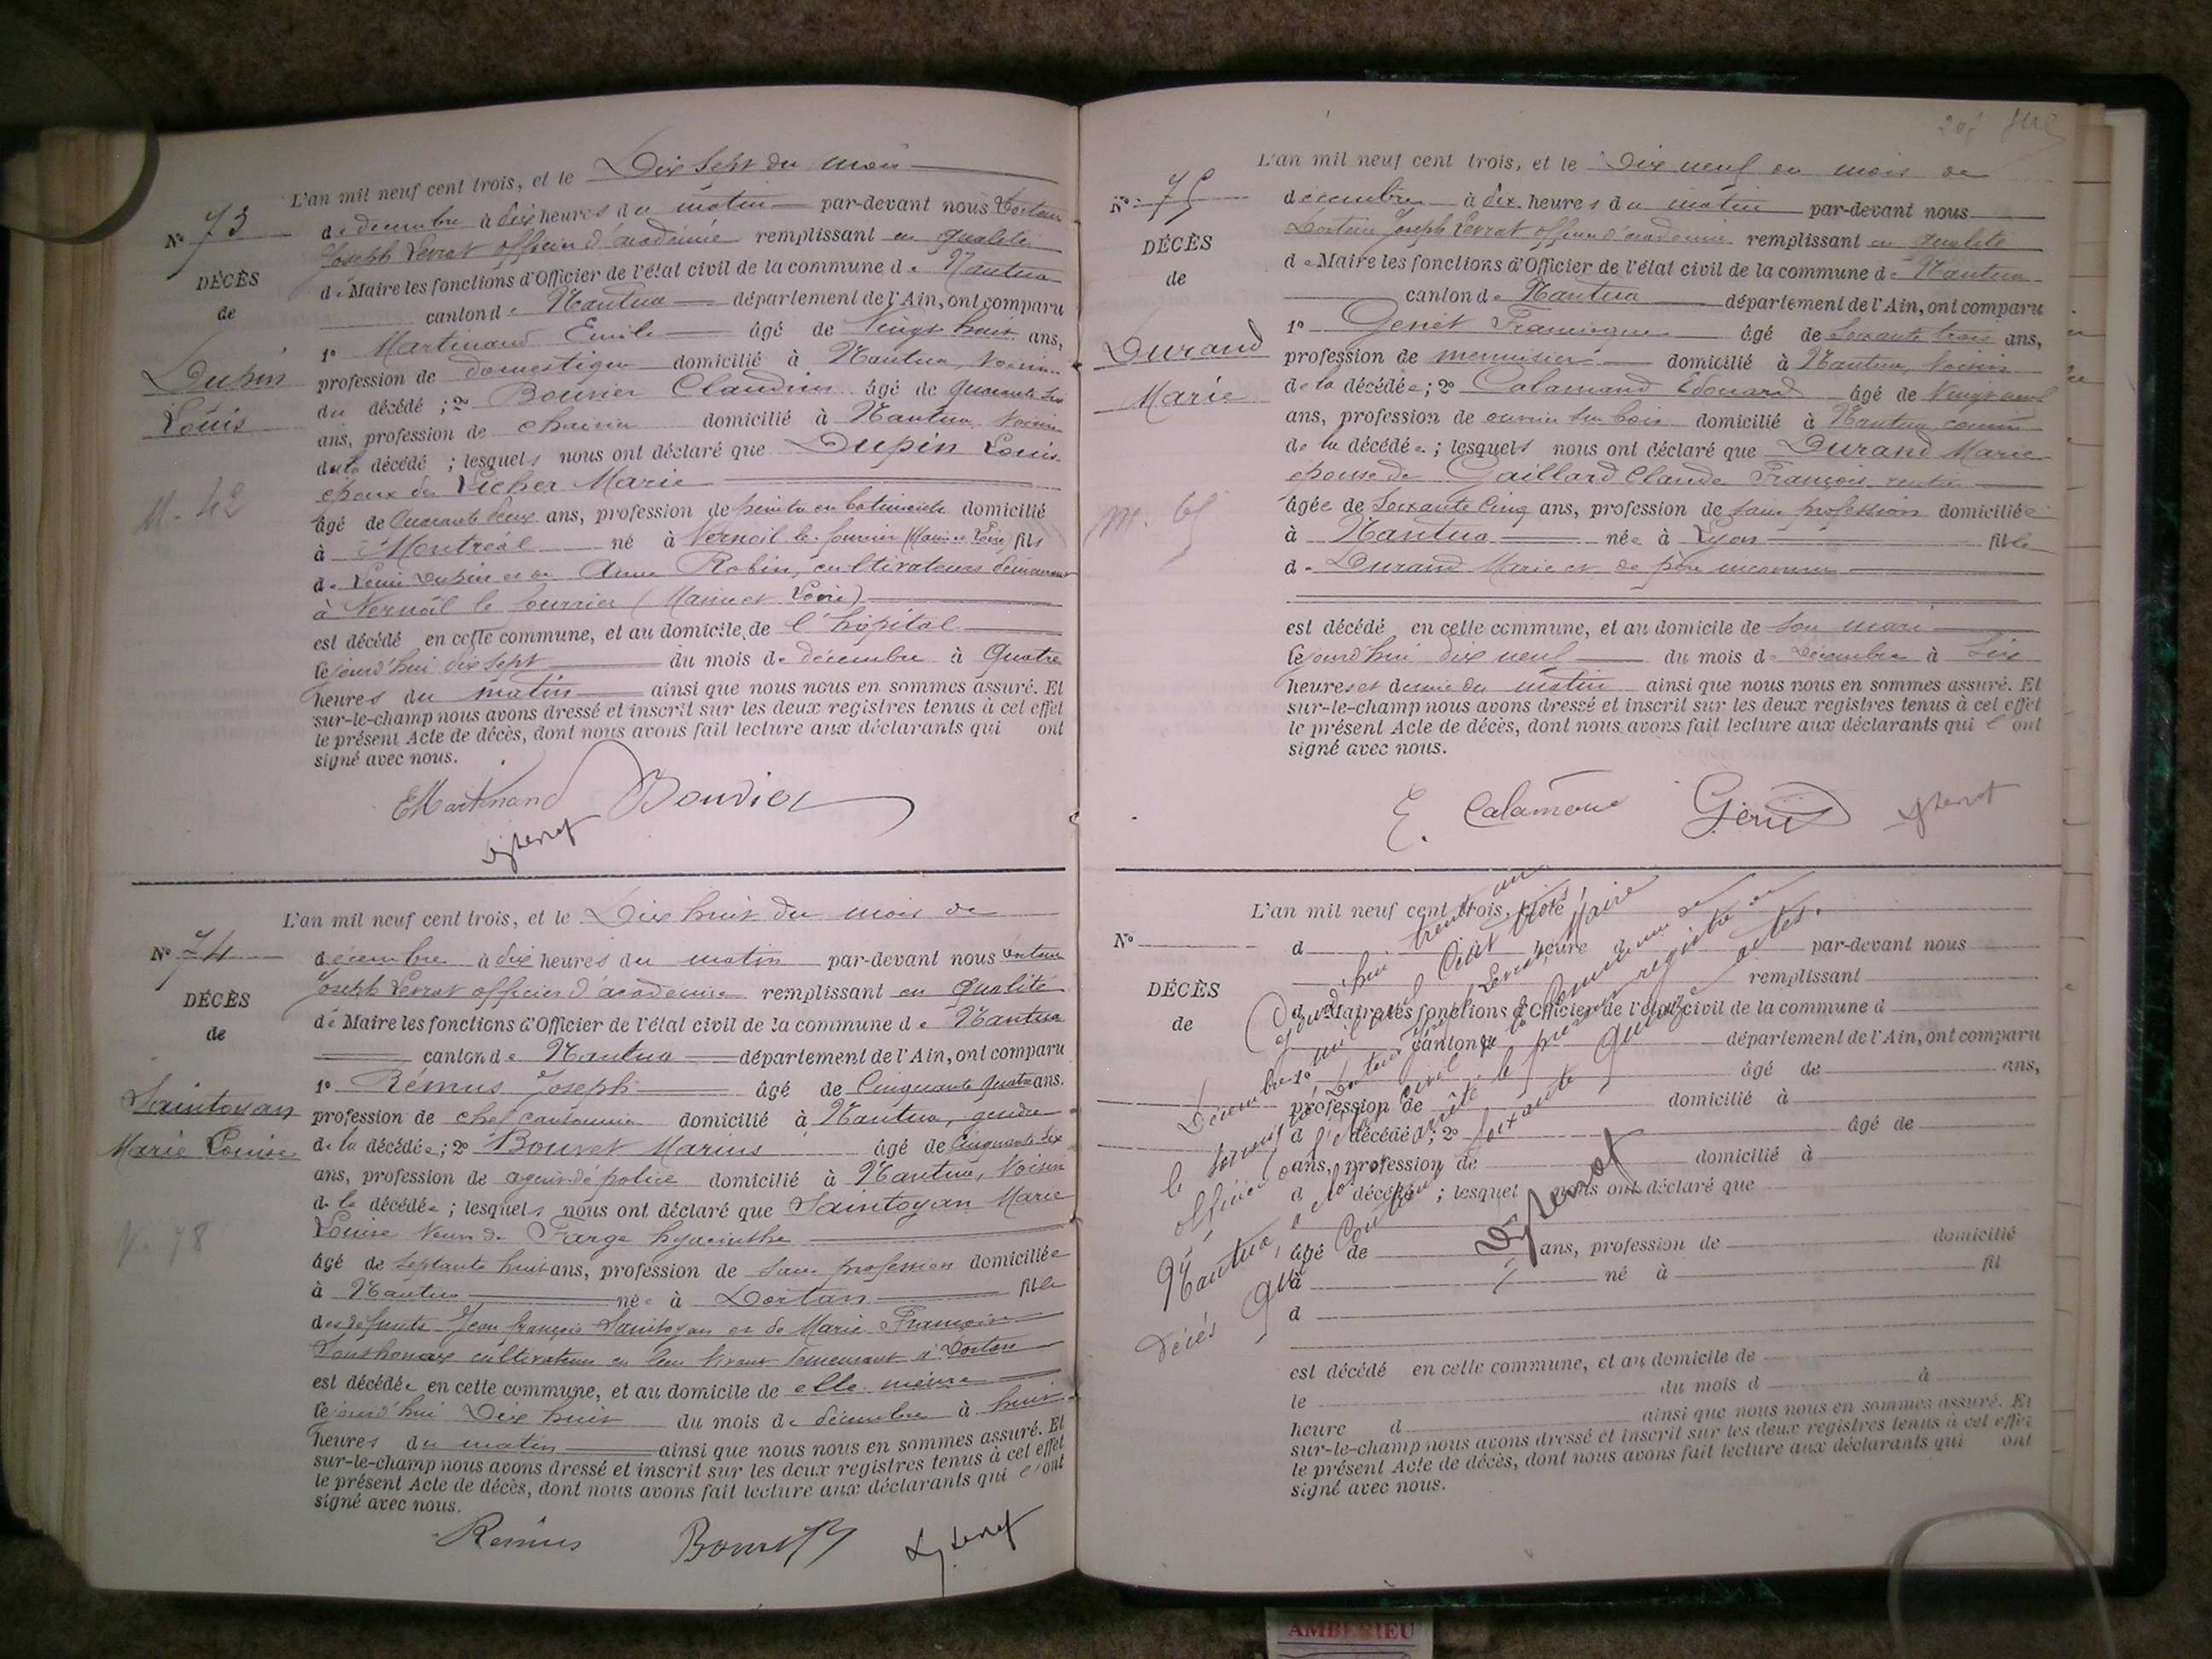 L'an mil neuf cent trois, et le Dix sept du mois
de décembre à dix heures du matin par-devant nous Docteur
Joseph Levrat officier d'académie remplissant en qualité
de Maire les fonctions d'Officier de l'état civil de la commune de Nantua
canton de Nantua département de l'Ain, ont comparu
1° Martinand Emile âgé de Vingt huit ans,
profession de domestique domicilié à Nantua, voisin
du décédé ; 2° Bouvier Claudius âgé de quarante six
ans, profession de domicilié à Nantua, voisin
du décédé ; lesquels nous ont déclaré que Dupin Louis
époux de Vicher Marie
âgé de Quarante deux ans, profession de peintre en batiments domicilié
à Montréal né à Vernoil le fourrier (Maine et Loire) fils
de Louis Dupin et de Anne Robin, cultivateurs demeurant
à Vernoil le fourrier (Maine et Loire)
est décédé en cette commune, et au domicile de l'hôpital
le jourd'hui dix sept du mois de décembre à Quatre
heures du matin ainsi que nous nous en sommes assuré. Et
sur-le-champ nous avons dressé et inscrit sur les deux registres tenus à cet effet
le présent Acte de décès, dont nous avons fait lecture aux déclarants qui ont
signé avec nous.
N° 73
DÉCÈS
de
Dupin
Louis
M. 42
E Martinand Bouvier
L'an mil neuf cent trois, et le Dix huit du mois de
décembre à dix heures du matin par-devant nous Docteur
Joseph Levrat officier d'académie remplissant en qualité
de Maire les fonctions d'Officier de l'état civil de la commune de Nantua
canton de Nantua département de l'Ain, ont comparu
1° Rémus Joseph âgé de Cinquante quatre ans.
profession de chef cantonnier domicilié à Nantua, gendre
de la décédée; 2° Bouvet Marius âgé de Cinquante six
ans, profession de agent de police domicilié à Nantua, Voisin
de la décédée ; lesquels nous ont déclaré que Saintoyan Marie
Louise Veuve de Farge hyacinthe
âgé de septante huit ans, profession de sans profession domiciliée
à Nantua née à Dortan fille
des défunts Jean françois Saintoyan et de Marie Françoise
cultivateurs en leur vivant demeurant à Dortan
est décédée en cette commune, et au domicile de elle même
le jourd'hui Dix huit du mois de décembre à huit
heures du matin ainsi que nous nous en sommes assuré. Et
sur-le-champ nous avons dressé et inscrit sur les deux registres tenus à cet effet
le présent Acte de décès, dont nous avons fait lecture aux déclarants qui l'ont
signé avec nous.
N° 74
DÉCÈS
de
Saintoyan
Marie Louise
78
Rémus Bouvet
L'an mil neuf cent trois, et le Dix neuf du mois de
décembre à dix heures du matin par-devant nous
Docteur Joseph Levrat officier d'académie remplissant en qualité
de Maire les fonctions d'Officier de l'état civil de la commune de Nantua
canton de Nantua département de l'Ain, ont comparu
1° Genet Francisque âgé de Soixante trois ans,
profession de menuisier domicilié à Nantua, Voisin
de la décédée; 2° Calamand Edouard âgé de Vingt neuf
ans, profession de ouvrier sur bois domicilié à Nantua, cousin
de la décédée ; lesquels nous ont déclaré que Durand Marie
épouse de Gaillard Claude François rentier
âgée de Soixante Cinq ans, profession de sans profession domiciliée
à Nantua née à Lyon fille
de Durand Marie et de père inconnu
est décédé en cette commune, et au domicile de son mari
le jourd'hui dix neuf du mois de Décembre à Six
heures et demie du matin ainsi que nous nous en sommes assuré. Et
sur-le-champ nous avons dressé et inscrit sur les deux registres tenus à cet effet
le présent Acte de décès, dont nous avons fait lecture aux déclarants qui l'ont
signé avec nous.
N° 75
DÉCÈS
de
Durand
Marie
m. 65
E. Calamand Genet
L'an mil neuf cent trois, et le
d heure d par-devant nous
remplissant
d Maire les fonctions d'Officier de l'état civil de la commune d
canton d département de l'Ain, ont comparu
1° âgé de ans,
profession de domicilié à
d décédé ; 2° âgé de
ans, profession de domicilié à
d décédé ; lesquel nous ont déclaré que
âgé de ans, profession de domicilié
à né à fil
d
est décédé en cette commune, et au domicile de
le du mois d à
heure d ainsi que nous nous en sommes assuré. Et
sur-le-champ nous avons dressé et inscrit sur les deux registres tenus à cet effet
le présent Acte de décès, dont nous avons fait lecture aux déclarants qui ont
signé avec nous.
N°
DÉCÈS
de
Cejourd'hui trente un
Décembre mil neuf Cent trois,
le soussigné Docteur Joseph Levrat, Maire
officier de l'état Civil de la Commune de
Nantua, a clos et arrêté le présent registre de
Décès qui Contient soixante quinze actes.
AMBERIEU